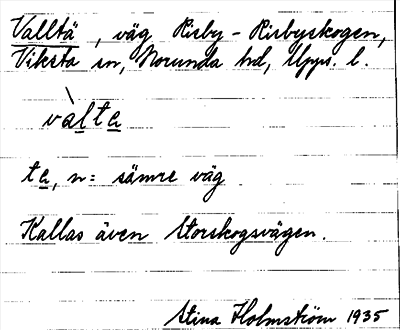 Valltä, väg Risby - Risbyskogen,
Viksta sn, Norunda hd, Upps. l.
vàlta
ta, n = sämre väg
Kallas även Storskogsvägen.
Stina Holmström 1935